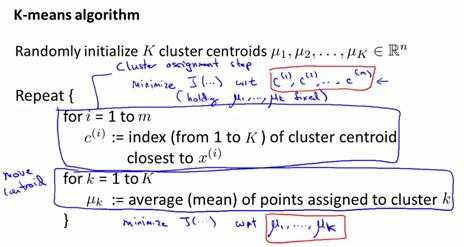 K-means algorithm
Randomly initialize K cluster centroids μ₁, μ₂, . . . , μ_K ∈ ℝⁿ
Cluster assignment step
minimize J(...) wrt c⁽¹⁾, c⁽²⁾, ..., c⁽ᵐ⁾ ←
(holding μ₁, ..., μ_K fixed)
Repeat {
for i = 1 to m
c⁽ⁱ⁾ := index (from 1 to K) of cluster centroid
closest to x⁽ⁱ⁾
move
centroid
for k = 1 to K
μ_k := average (mean) of points assigned to cluster k
}
minimize J(...) wrt μ₁, ..., μ_K